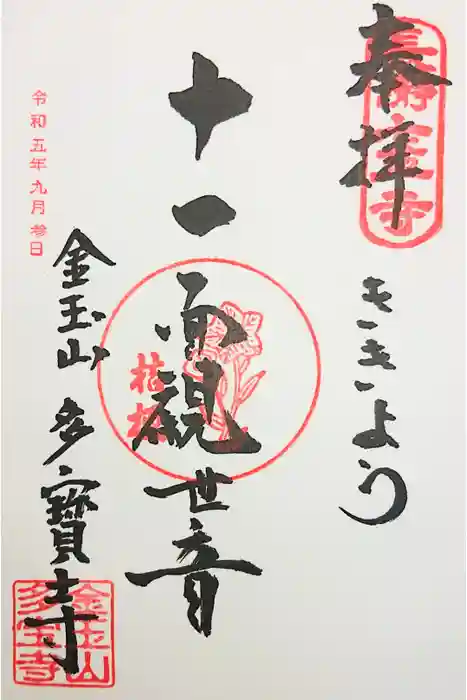 奉拝
ききよう
十一面観世音
桔梗
金玉山 多寶寺
令和五年九月参日
金玉山
多宝寺